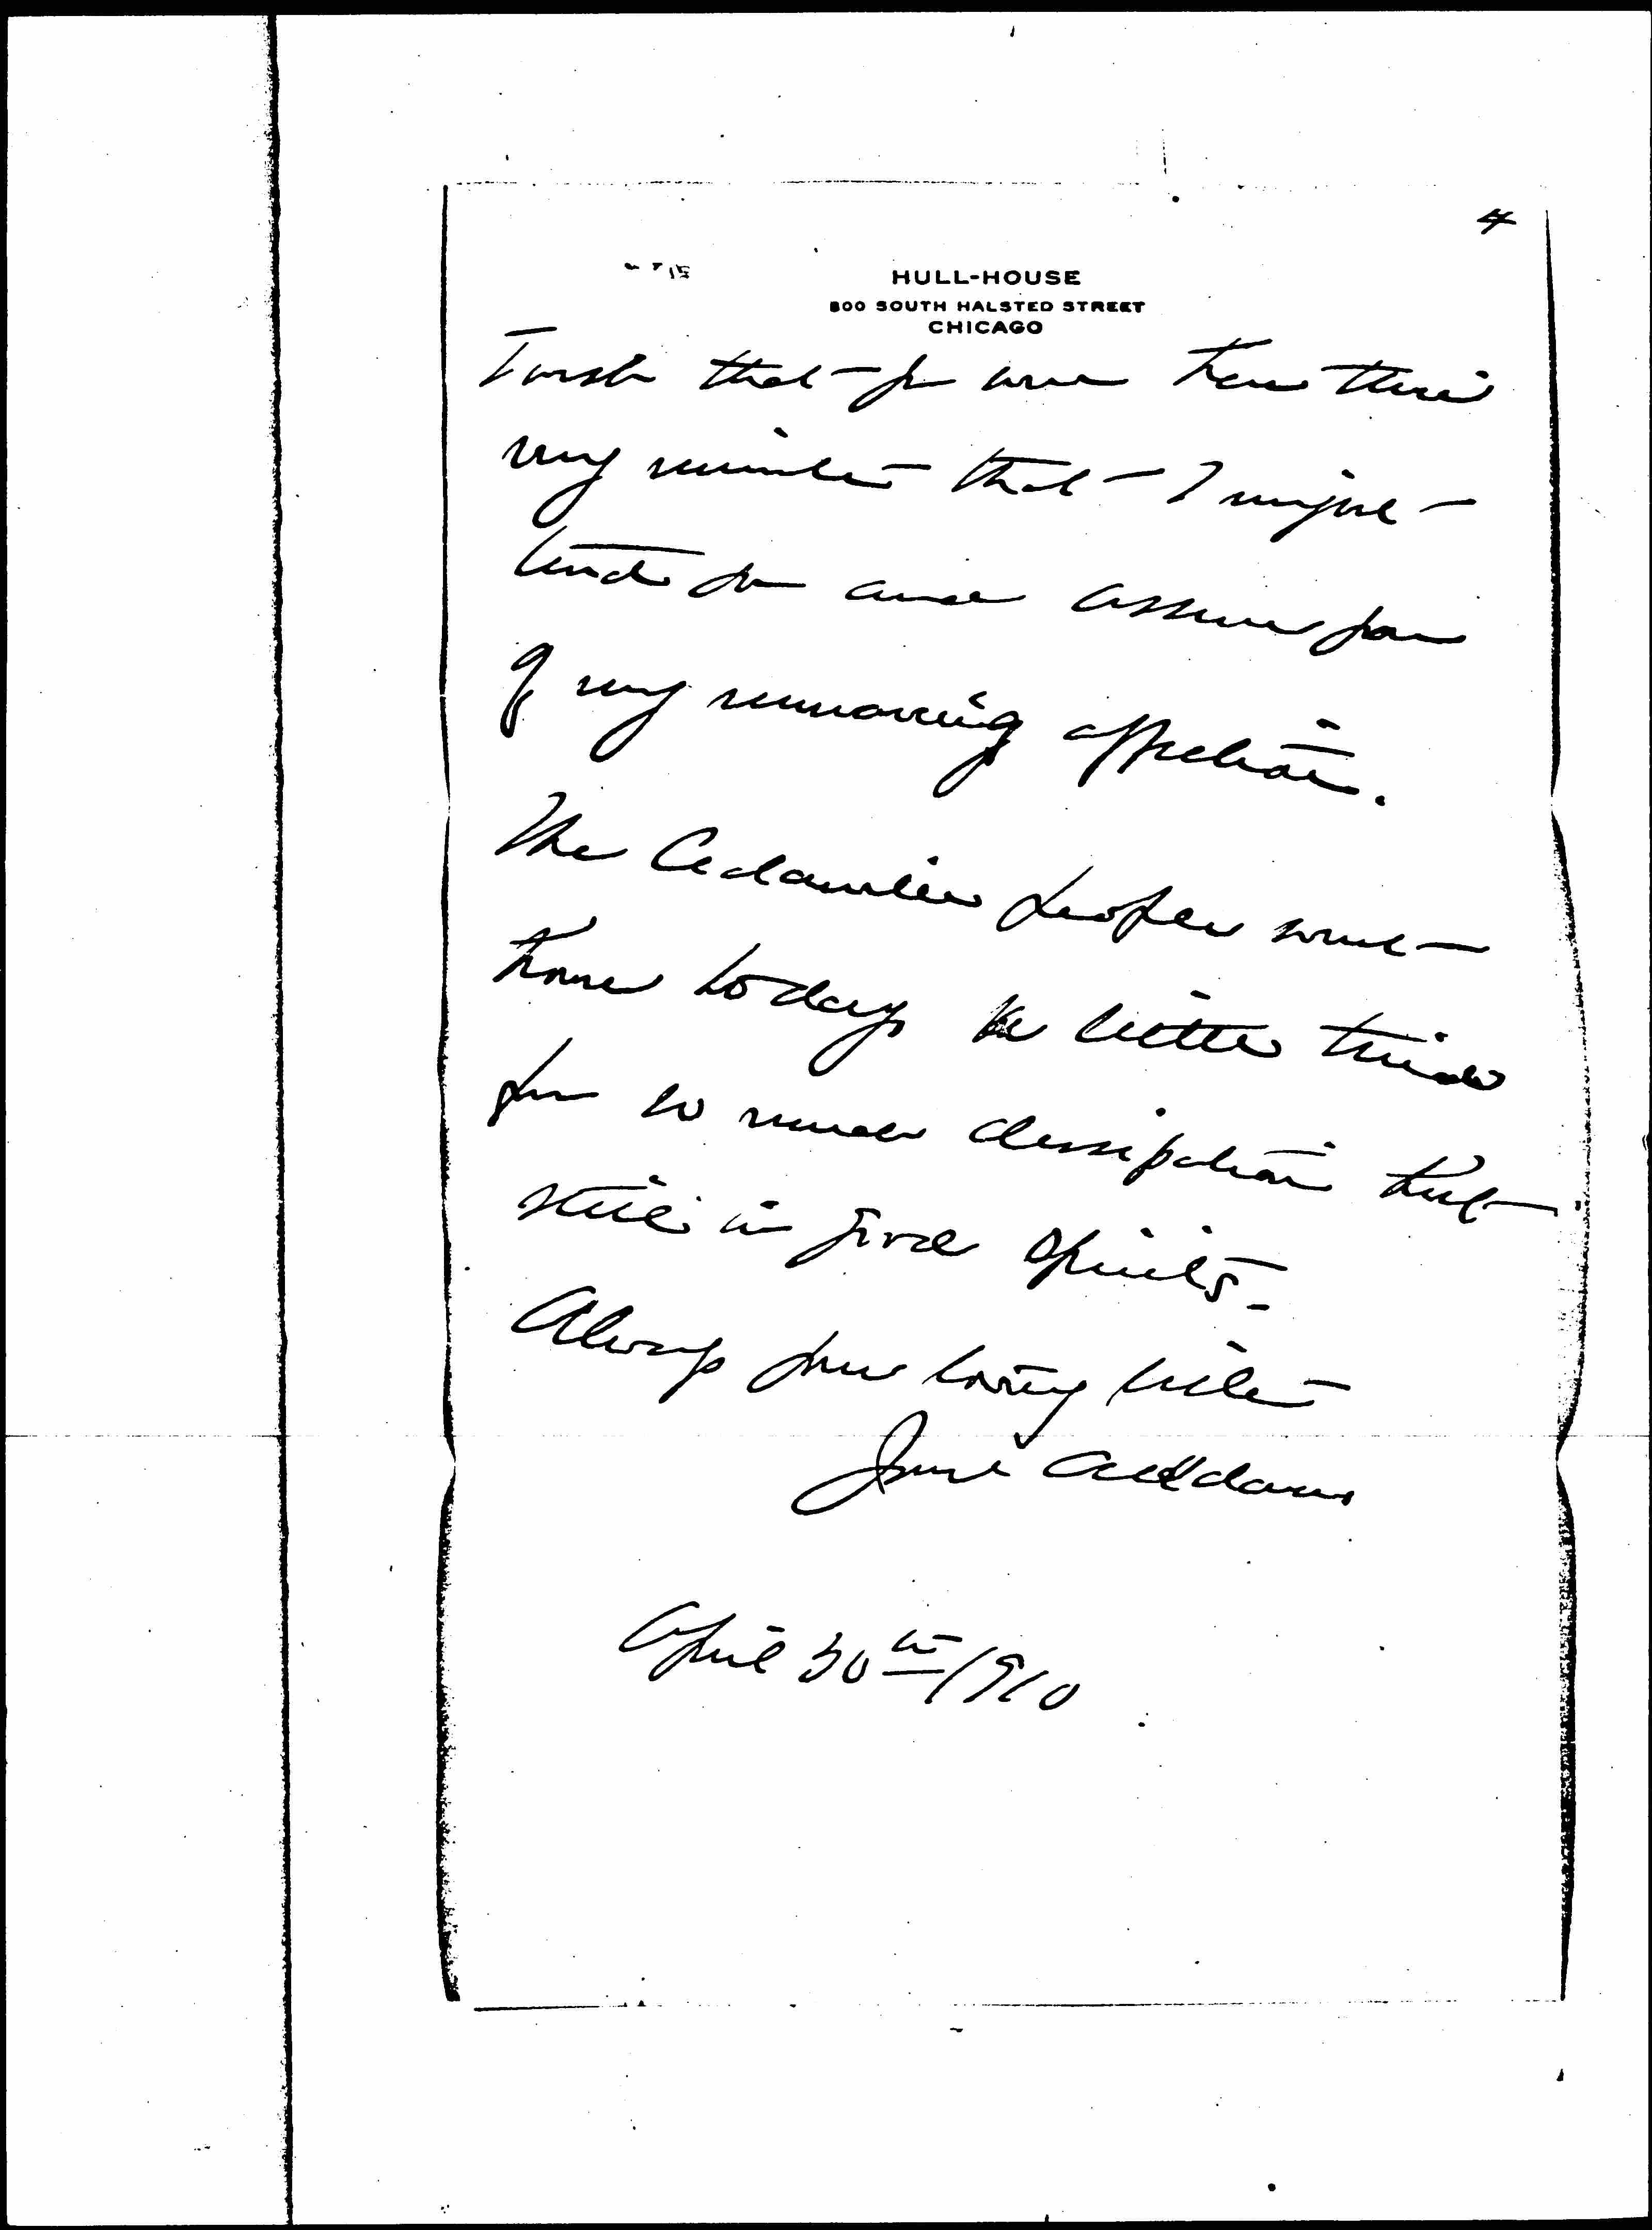 4
HULL-HOUSE
800 SOUTH HALSTED STREET
CHICAGO
I wish that you were here this
very minute that I might
and assure you
of my unwavering affection.
The Cedarville people went
home today a little tired
for so much dissipation but
still in good spirits -
Always your loving
Jane Addams
April 30th 1910